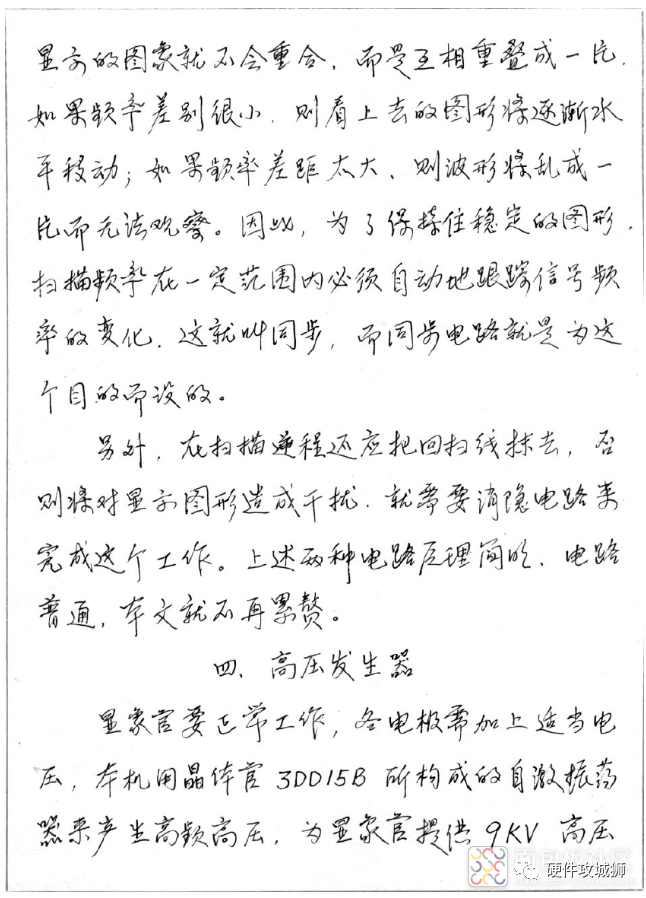 显示的图象就不会重合，而是互相重叠成一片.
如果频率差别很小，则看上去的图形将逐渐水
平移动；如果频率差距太大、则波形将乱成一
片而无法观察。因此，为了保持住稳定的图形，
扫描频率在一定范围内必须自动地跟踪信号频
率的变化，这就叫同步，而同步电路就是为这
个目的而设的。
另外，在扫描逆程还应把回扫线抹去，否
则将对显示图形造成干扰.就需要消隐电路来
完成这个工作。上述两种电路原理简明、电路
普通，本文就不再累赘。
四、高压发生器
显象官要正常工作，各电极需加上适当电
压，本机用晶体官3DD15B所构成的自激振荡
器来产生高频高压，为显象官提供9KV高压
面包板社区
硬件攻城狮